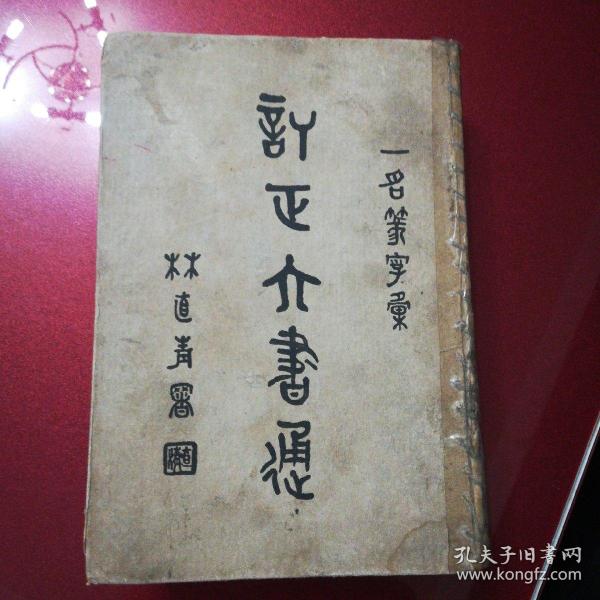 一名篆字彙
訂正六書通
林直青署
孔夫子旧书网
www.kongfz.com